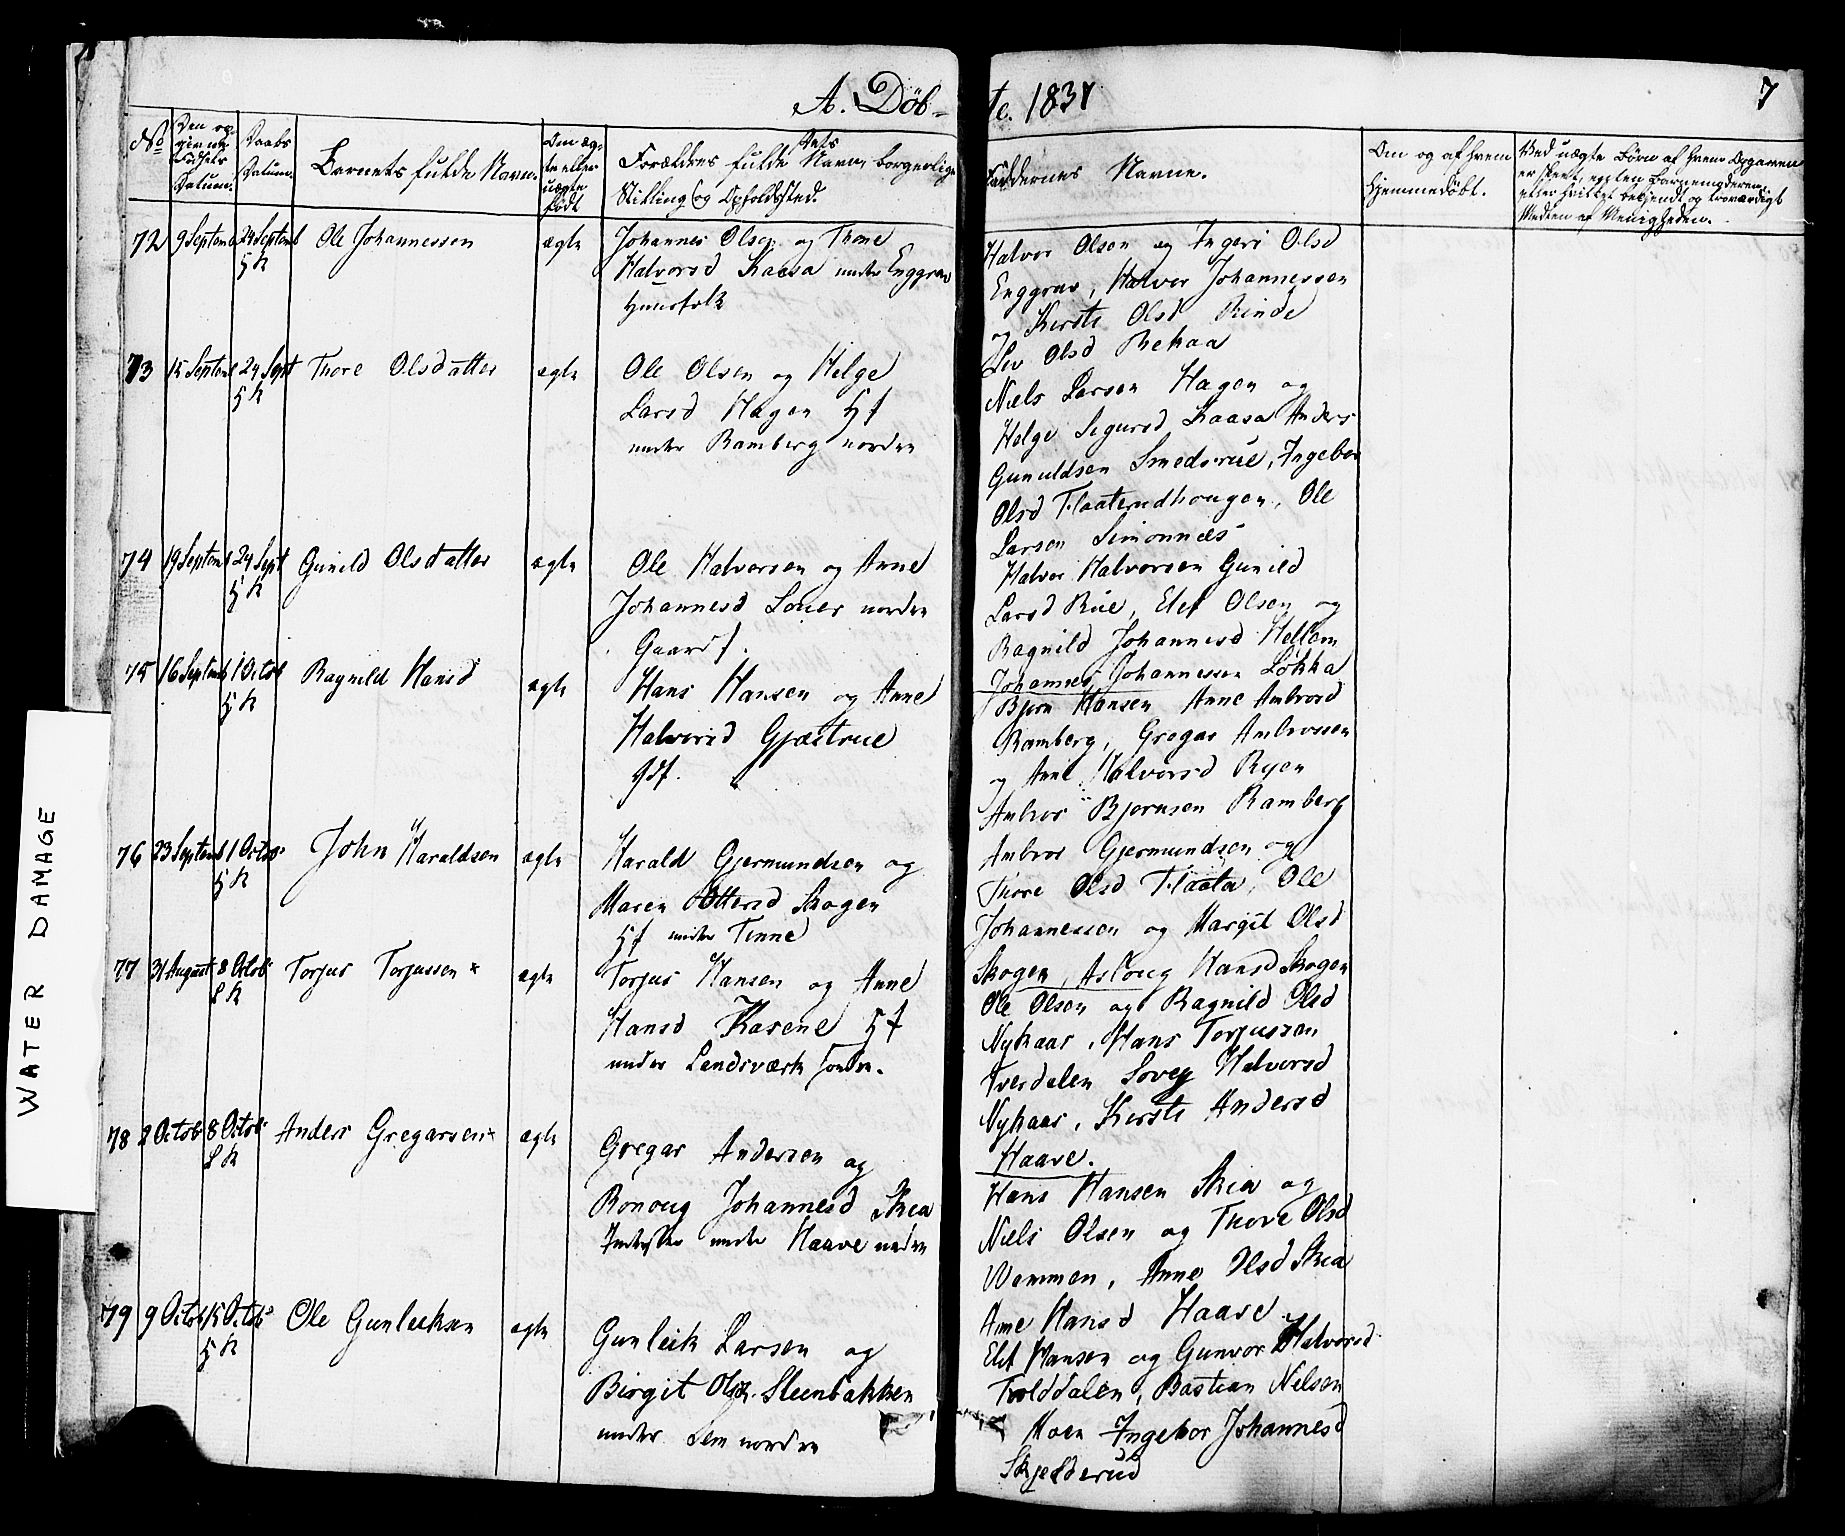 A. Döb-
te. 1837
7
No
Den op-
givne
Fødsels
Datum.
Daabs
Datum.
Barnets fulde Navn.
Om æg-
te eller
uægte
født
Forældres fulde Navn, borgerlige
Stilling og Opholdsted.
Faddernes Navne.
Om og af hvem
hjemmedöbt.
Ved uægte Börn af hvem Opgaven
er skeet, enten Barnemoderen,
eller hvilket bekjendt og troværdigt
Medlem af Menigheden.
72 9 Septemb 24 Septemb Ole Johannessen ægte Johannes Olsen og Thone
HK Halvorsd Kaasa under Enggrav
Huusfolk
Halvor Olsen og Ingeri Olsd
Enggrav, Halvor Johannessen
og Kirsti Olsd Rinde
Liv Olsd Bekaa
73 15 Septemb 24 Sept Thore Olsdatter ægte Ole Olsen og Helge
HK Larsd Hagen Hf
under Ramberg nordre
Niels Larsen Hagen og
Helge Sigursd Kaasa Anders
Gunuldsen Smedsrue, Ingebor
Olsd Flaaterudhougen, Ole
Larsen Simonnæs
74 19 Septemb 24 Sept Gunild Olsdatter ægte Ole Halvorsen og Anne
HK Johannesd Louer nordre
Gaardf.
Halvor Halvorsen Gunild
Larsd Rue, Elef Olsen og
Ragnild Johannesd Hellem
Johannes Johannessen Løkka
75 16 Septemb 1 Octob Ragnild Hansd ægte Hans Hansen og Anne
HK Halvorsd Gjæstrue
Gdf.
Bjørn Hansen Anne Ambrosd
Ramberg, Gregar Ambrossen
og Anne Halvorsd Ryen
Ambros Bjørnsen Ramberg
76 23 Septemb 1 Octob John Haraldsen ægte Harald Gjermundsen og
HK Maren Ottersd Skogen
Hf under Tinne
Ambros Gjermundsen og
Thore Olsd Flaata, Ole
Johannessen og Margit Olsd
Skogen, Asloug Hansd Skogen
77 31 August 8 Octob Torjus Torjussen × ægte Torjus Hansen og Anne
LK Hansd Kasene Hf
under Landsværk søndre.
Ole Olsen og Ragnild Olsd
Nykaas, Hans Torjussen
Tverdalen Sovej Halvorsd
Nykaas, Kirsti Andersd
Haave.
78 2 Octob 8 Octob Anders Gregarsen × ægte Gregar Andersen og
LK Ronoug Johannesd Skea
Inderster under Haave nedre
Hans Hansen Skea og
Niels Olsen og Thore Olsd
Wammen, Anne Olsd Skea
Anne Hansd Haave
79 9 Octob 15 Octob Ole Gunleiksen ægte Gunleik Larsen og
HK Birgit Olsd. Steenbakken
under Sem nordre
Elef Hansen og Gunvor Halvorsd
Trolddalen, Bastian Nilsen
Moen Ingebor Johannesd
Skjelderud
WATER DAMAGE